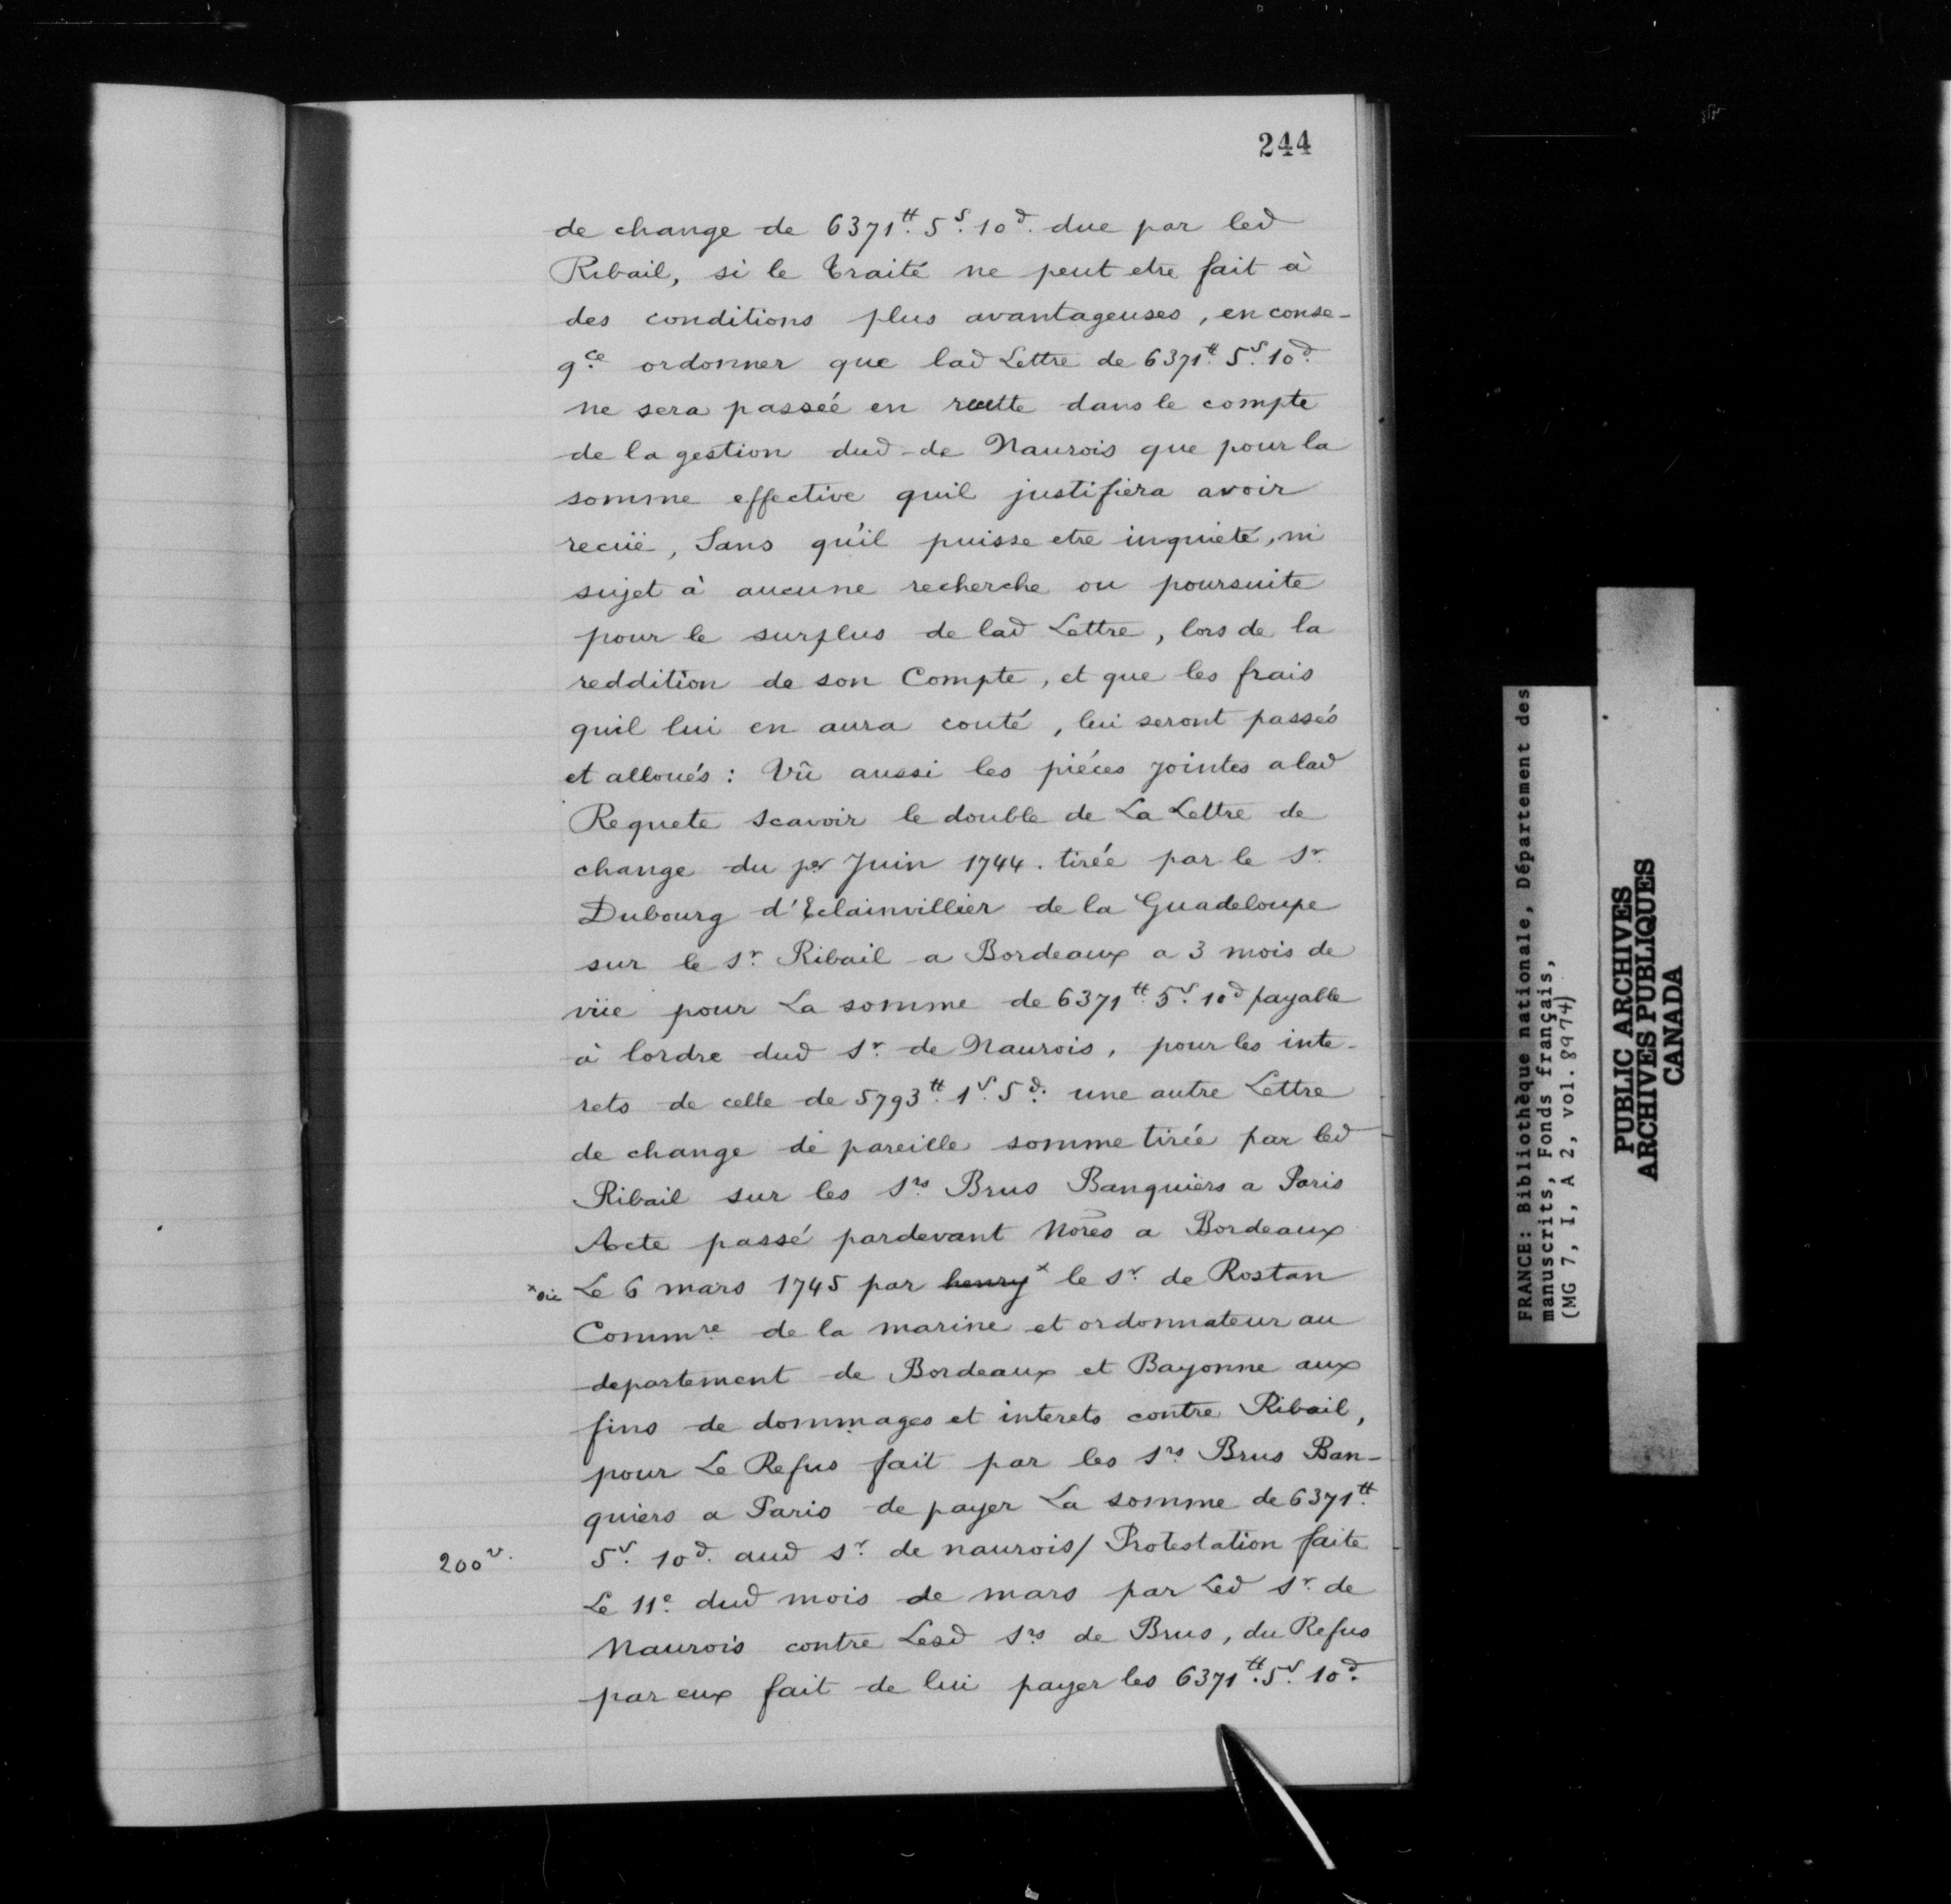 244
de change de 6371tt. 5s. 10d. due par led
Ribail, si le traité ne peut etre fait à
des conditions plus avantageuses, en conse-
qce ordonner que lad Lettre de 6371tt. 5s. 10d.
ne sera passée en rcette dans le compte
de la gestion dud de Naurois que pour la
somme effective quil justifiera avoir
recüe, Sans qu'il puisse etre inquieté, ni
sujet à aucune recherche ou poursuite
pour le surplus de lad Lettre, lors de la
reddition de son Compte, et que les frais
quil lui en aura couté, lui seront passés
et alloués : Vû aussi les piéces jointes a lad
Requete scavoir le double de La Lettre de
change du per Juin 1744. tirée par le Sr.
Dubourg d'Eclainvillier de la Guadeloupe
sur le Sr. Ribail a Bordeaux a 3 mois de
vüe pour La somme de 6371tt. 5s. 10d payable
à lordre dud Sr. de Naurois, pour les inte-
rets de celle de 5793tt. 1s. 5d. une autre Lettre
de change de pareille somme tirée par led
Ribail sur les Srs Brus Banquiers a Paris
Acte passé pardevant Nores a Bordeaux
x sic Le 6 mars 1745 par henry x le Sr. de Rostan
Commre de la marine et ordonnateur au
departement de Bordeaux et Bayonne aux
fins de dommages et interets contre Ribail,
pour Le Refus fait par les Srs Brus Ban-
quiers a Paris de payer La somme de 6371tt.
200v. 5s. 10d. aud Sr. de naurois/ Protestation faite
Le 11e. dud mois de mars par Led Sr. de
Naurois contre Lesd Srs de Brus, du Refus
par eux fait de lui payer les 6371tt. 5s. 10d.
FRANCE: Bibliothèque nationale, Département des
manuscrits, Fonds français,
(MG 7, I, A 2, vol. 8974)
PUBLIC ARCHIVES
ARCHIVES PUBLIQUES
CANADA